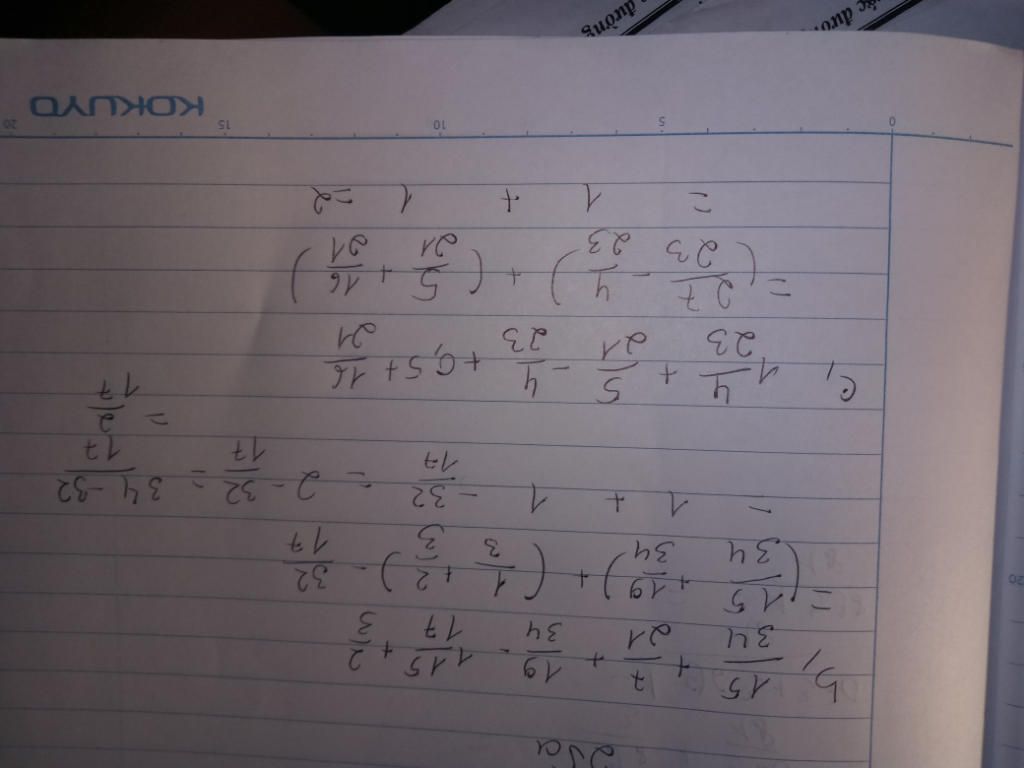 2) a
b, 15/34 + 7/21 + 19/34 - 1 15/17 + 2/3
= (15/34 + 19/34) + (1/3 + 2/3) - 32/17
= 1 + 1 - 32/17 = 2 - 32/17 = 34-32/17
= 2/17
c, 1 4/23 + 5/21 - 4/23 + 0,5 + 16/21
= (27/23 - 4/23) + (5/21 + 16/21)
= 1 + 1 = 2
0 5 10 15 20
KOKUYO